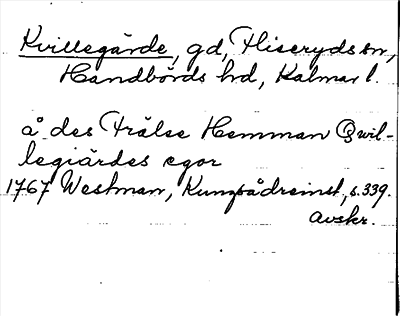 Kvillegärde, gd, Fliseryds sn,
Handbörds hd, Kalmar l.
å des Frälse Hemman Qwil-
legiärdes egor
1767 Westman, Kungsådreinst, s. 339.
Avskr.